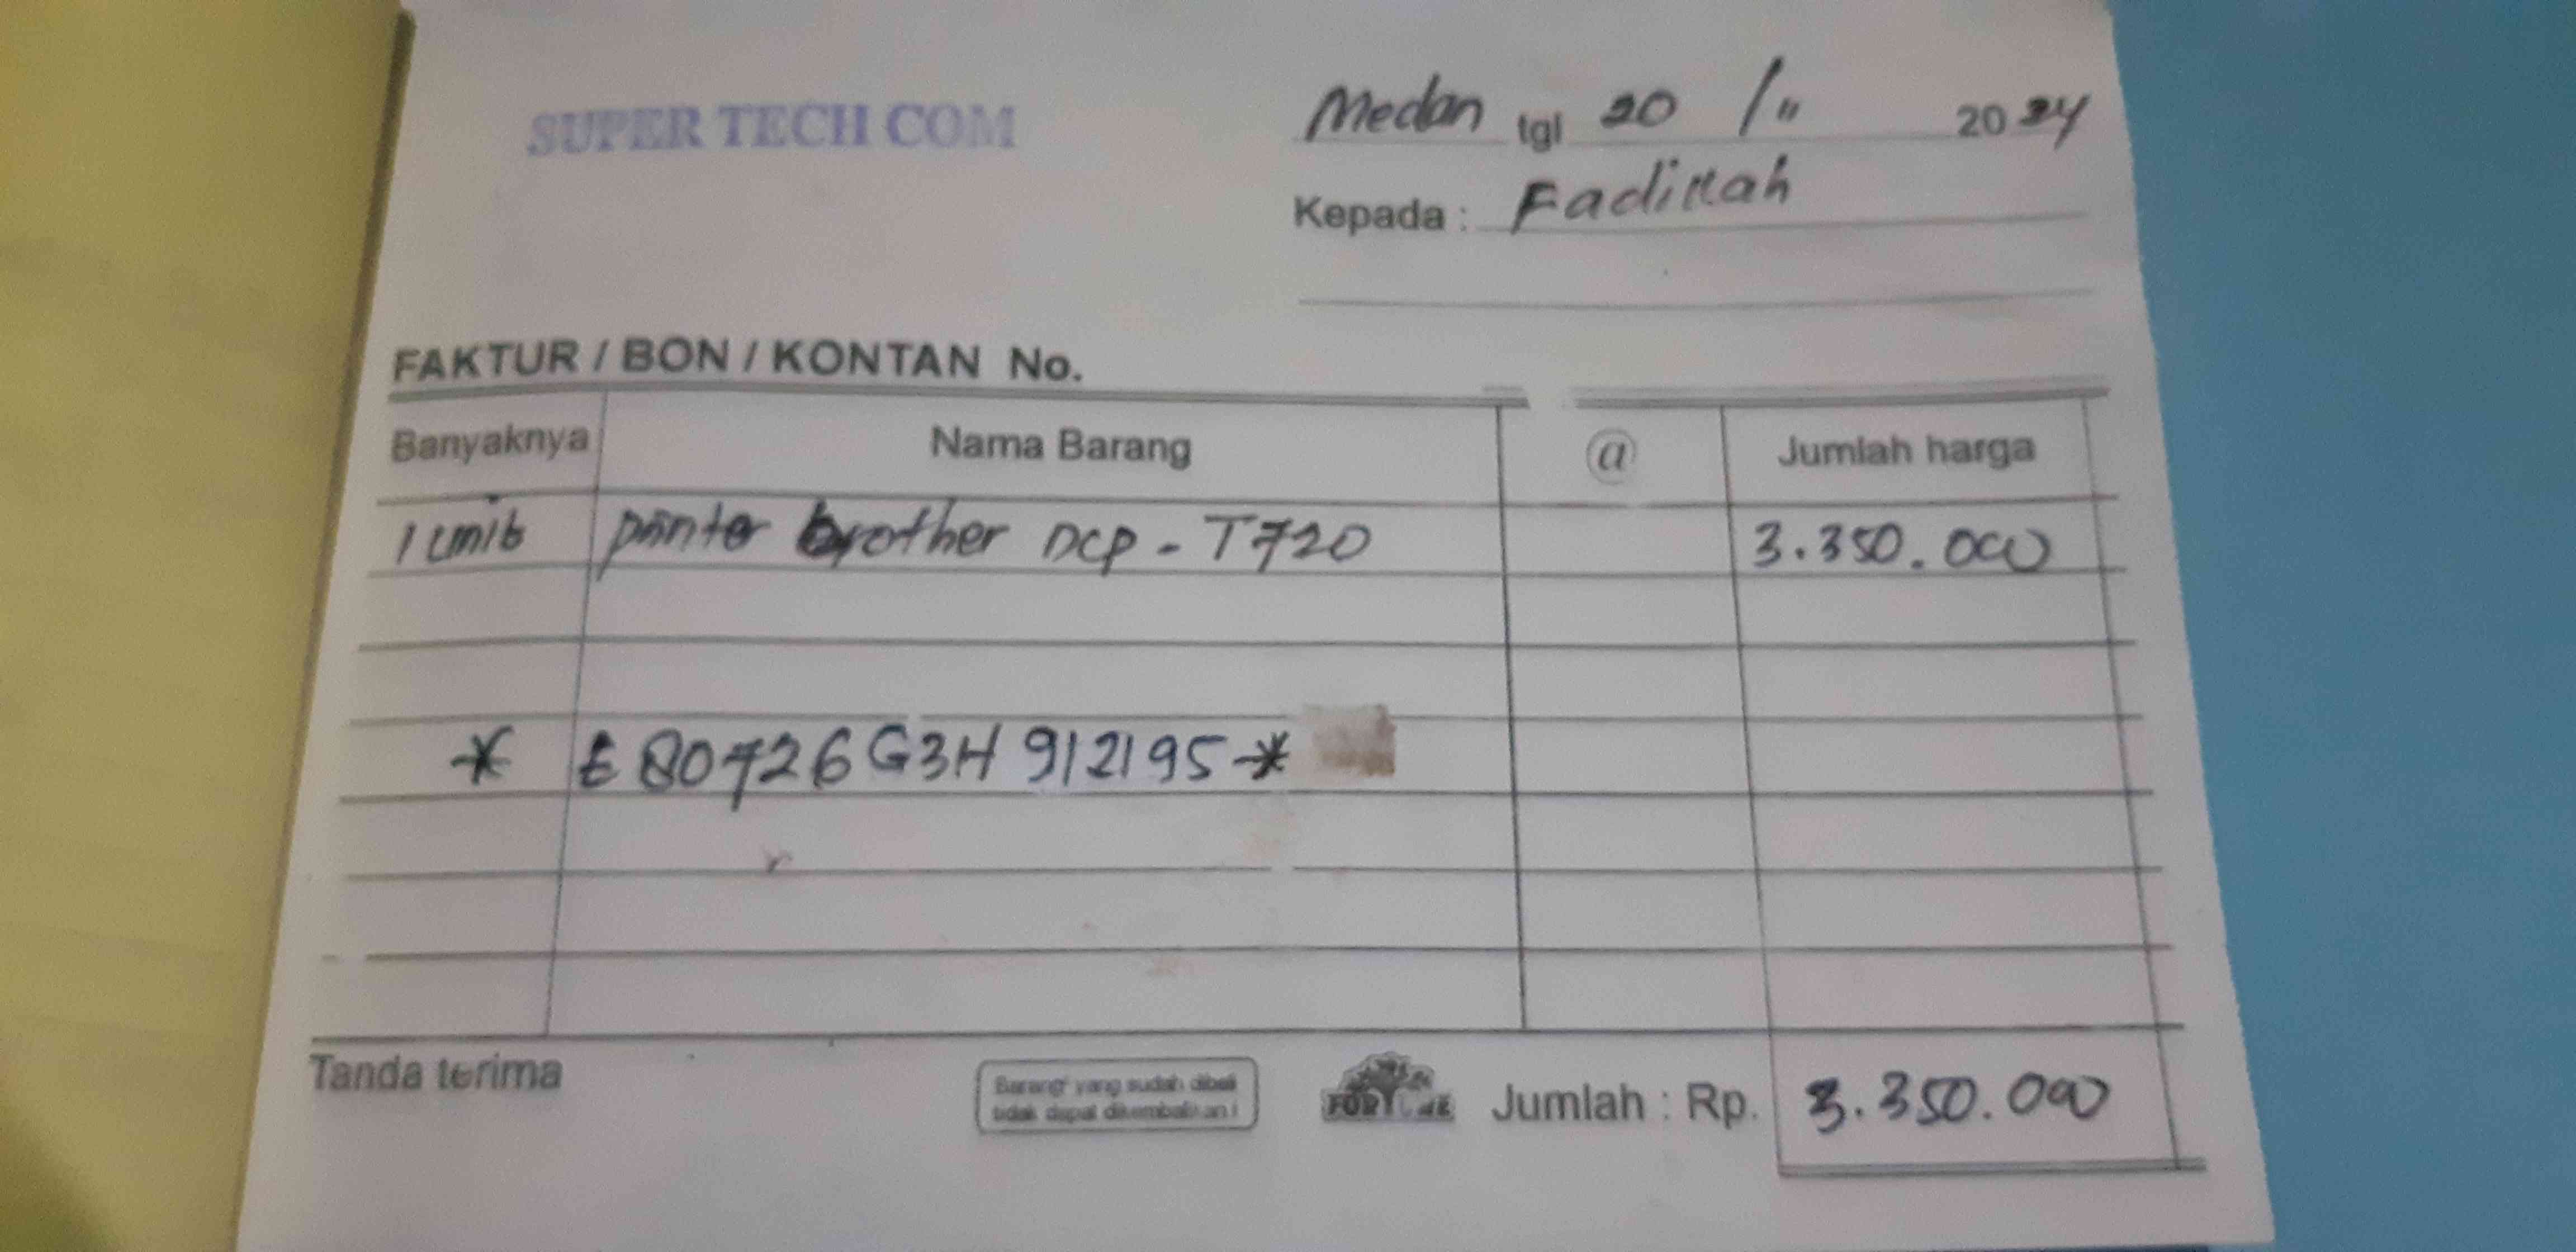 SUPER TECH COM
Medan tgl 20 / 11 2024
Kepada : Fadillah
FAKTUR / BON / KONTAN No.
Banyaknya Nama Barang @ Jumlah harga
1 unit printer brother DCP - T720 3.350.000
* E80726G3H912195*
Tanda terima
Barang² yang sudah dibeli
tidak dapat dikembalikan !
FORTUNE
Jumlah : Rp. 3.350.000